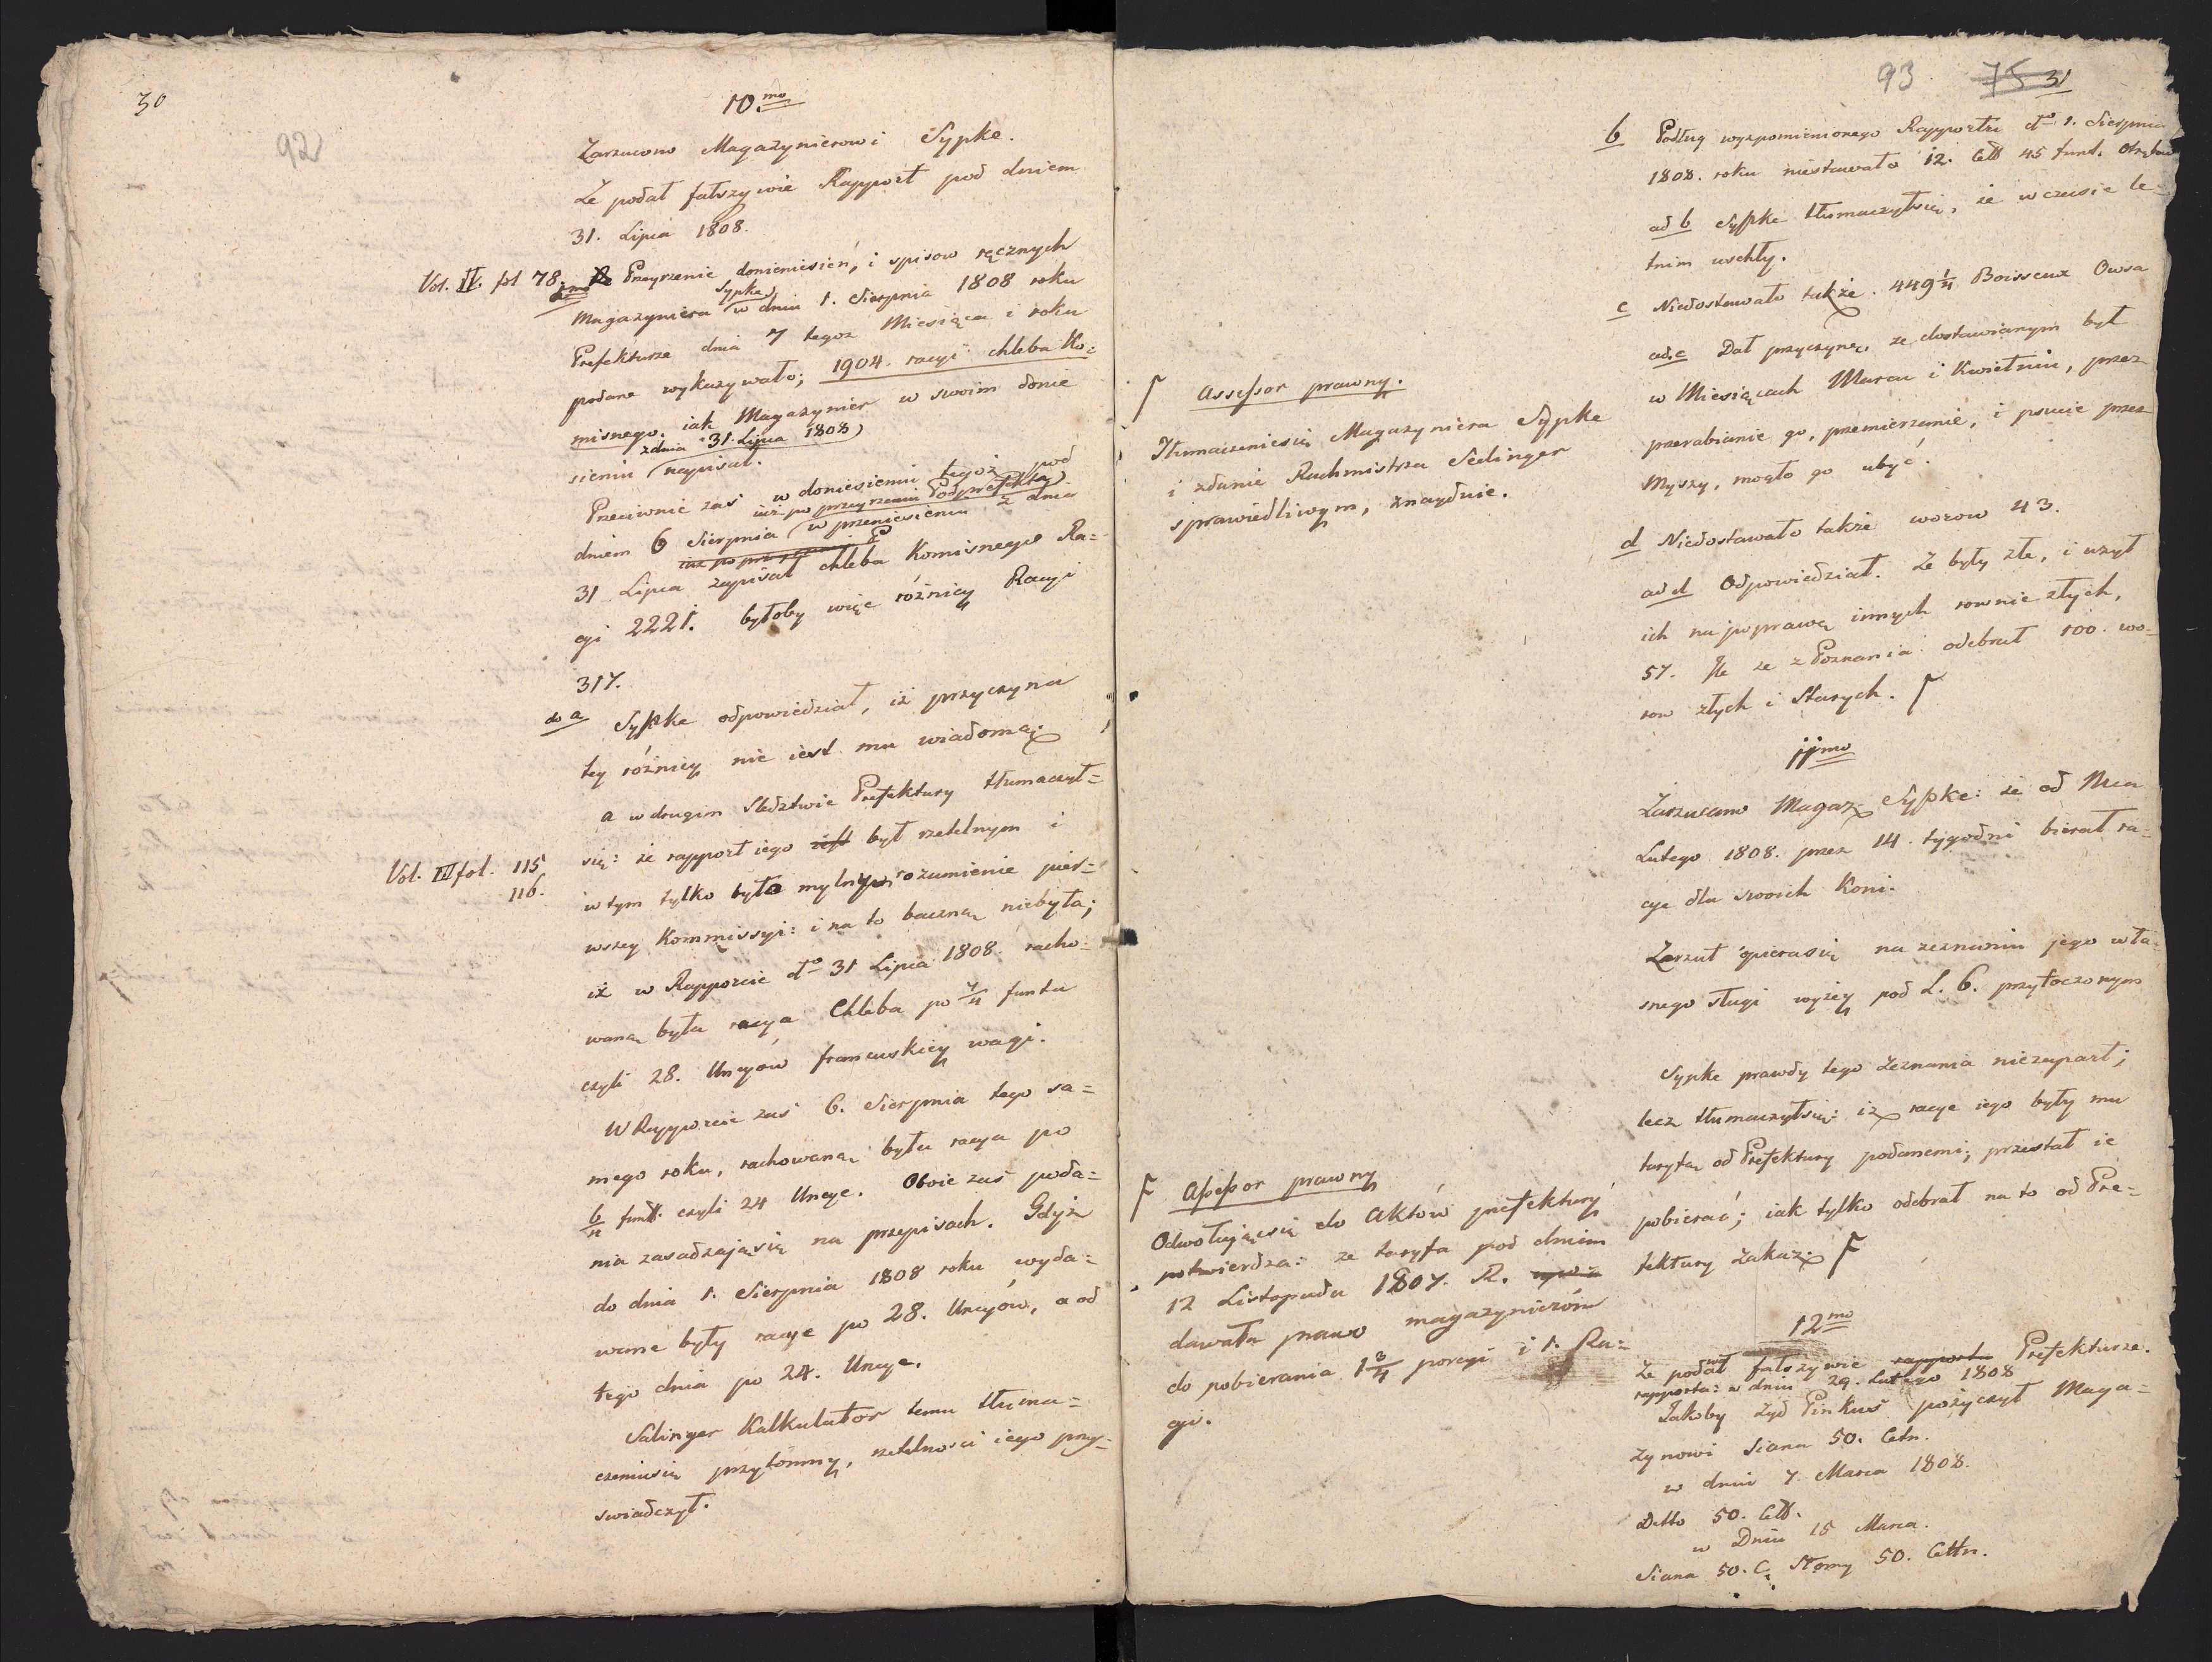 30
92
10.mo
Zarzucono Magazynierowi Sypke.
Że podał fałszywie Rapport pod dniem
31. Lipca 1808.
Vol. IV. fol 78.
Przeyrzenie doniesień, i spisow ręcznych
Magazyniera Sypke w dniu 1. Sierpnia 1808 roku
Prefekturze dnia 7 tegoż Miesiąca i roku
podane wykazywało; 1904. racyi chleba Ko=
misnego. iak Magazynier w swoim donie
sieniu z dnia 31. Lipca 1808 napisał.
Przeciwnie zaś w doniesieniu tegoż pod
dniem 6 Sierpnia iuż po przeyrzeniu Podprefekta w przeniesieniu z dnia
iuż po przeyrzeniu P
31 Lipca zapisał chleba Komisnego Ra=
cyi 2221. byłoby więc różnicy Racyi
317.
do a Sypke odpowiedział, iż przyczyna
tey różnicy nie iest mu wiadomą;
a w drugim Sledztwie Prefektury tłumaczył=
Vol. III fol. 115
116.
się: że rapport iego iest był rzetelnym i
w tym tylko było mylne rozumienie pier=
wszey Kommissyi: i na to baczną niebyła;
iż w Rapporcie dto 31 Lipca 1808. racho=
waną była racya Chleba po 7/4 funta
czyli 28. Uncyów francuskiey wagi.
W Rapporcie zaś 6. Sierpnia tego sa=
mego roku, rachowaną była racya po
6/4 funt. czyli 24 Uncye. Oboie zaś poda=
nia zasadzaią się na przepisach. Gdyż
do dnia 1. Sierpnia 1808 roku wyda=
wane były racye po 28. Uncyów, a od
tego dnia po 24. Uncye.
Salinger Kalkulator temu tłuma=
czeniu się przytomny, rzetelności iego przy=
swiadczył.
93 75 31
b Podług wyżpomienionego Rapportu dto 1. Sierpnia
1808. roku niestawało 12. Ctt 45 funt. Otrębow
ad b Sypke tłumaczył się, że w czasie le=
tnim uschły.
c Niedostawało także 449 1/4 Boisseux Owsa
ad. c Dał przyczynę, ze dostawianym był
w Miesiącach Marcu i Kwietniu, przez
przerabianie go, przemierzanie, i psucie przez
Myszy, mogło go ubyć.
d Niedostawało także worow 43.
ad d Odpowiedział. Że były złe, i użył
ich na poprawę innych rownie złych,
57. że z Poznania odebrał 100. wo=
row złych i Starych. F
F Assessor prawny.
Tłumaczenie się Magazyniera Sypke
i zdanie Rachmistrza Selinger
sprawiedliwym, znayduie.
11mo
Zarzucano Magaz. Sypke: że od Mca
Lutego 1808. przez 14. tygodni bierał ra=
cye dla swoich Koni.
Zarzut opiera się na zeznaniu jego wła=
snego sługi wyżey pod L. 6. przytoczonym
Sypke prawdy tego Zeznania niezaparł;
lecz tłumaczył się: iż racye iego były mu
taryfą od Prefektury podanemi; przestał ie
pobierać; iak tylko odebrał na to od Pre=
fektury Zakaz. F
F Assessor prawny
Odwołując się do Aktów prefektury
potwierdza: ze taryfa pod dniem
12 Listopada 1807. R.
dawała prawo magazynierów
do pobierania 1 3/4 porcyi i 1. Ra=
cyi.
12mo
Że podał fałszywie rapporta Prefekturze.
rapporta: w dniu 29. Lutego 1808
Jakoby Żyd Pinkus pożyczył Maga=
zynowi Siana 50. Cetn.
w dniu 7. Marca 1808.
Detto 50. Ctt.
w Dniu 15 Marca.
Siana 50. C. Słomy 50. Cettn.